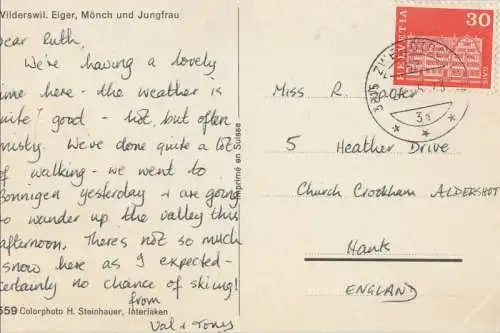 Wilderswil. Eiger, Mönch und Jungfrau
ear Ruth,
We're having a lovely
ime here - the weather is
uite good - hot, but often
misty. We've done quite a lot
of walking - we went to
Bönnigen yesterday & are going
to wander up the valley this
afternoon. There's not so much
snow here as I expected -
certainly no chance of skiing!
from
Val & Tony
559 Colorphoto H. Steinhauer, Interlaken
Imprimé en Suisse
HELVETIA
30
3805
3a
Miss R.
5 Heather Drive
Church Crookham ALDERSHOT
Hants
ENGLAND